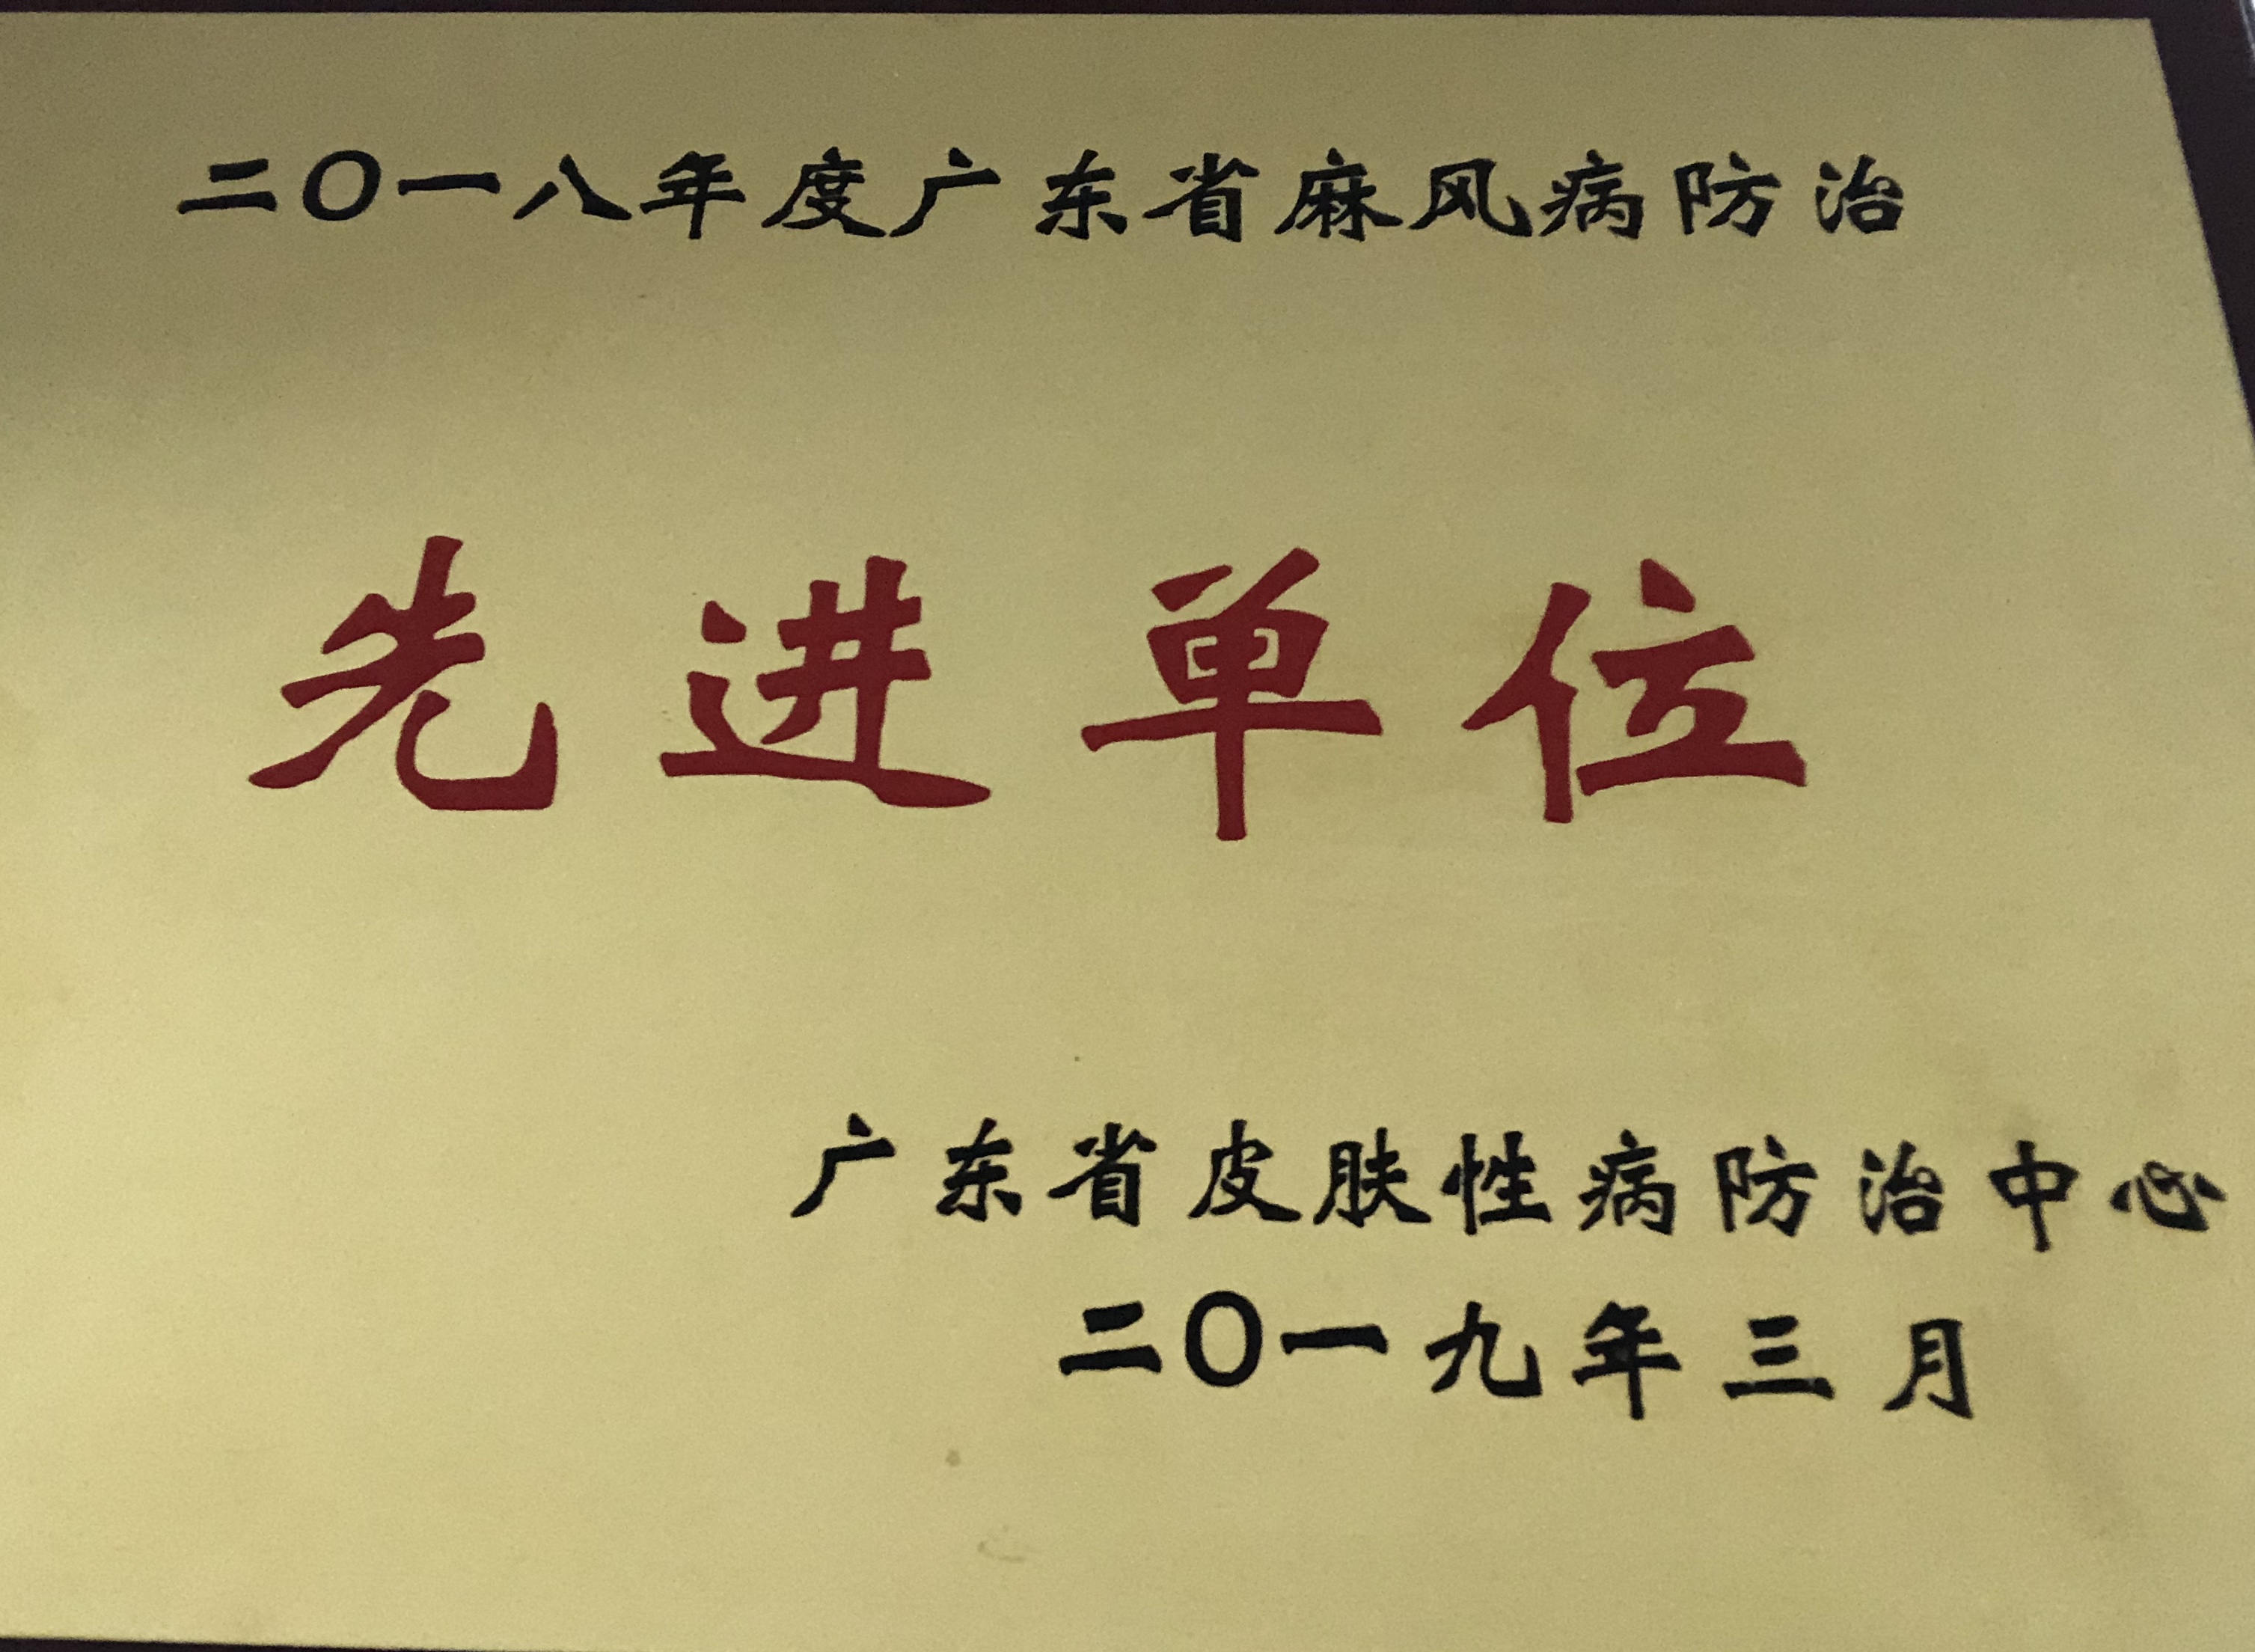 二〇一八年度广东省麻风病防治
先进单位
广东省皮肤性病防治中心
二〇一九年三月